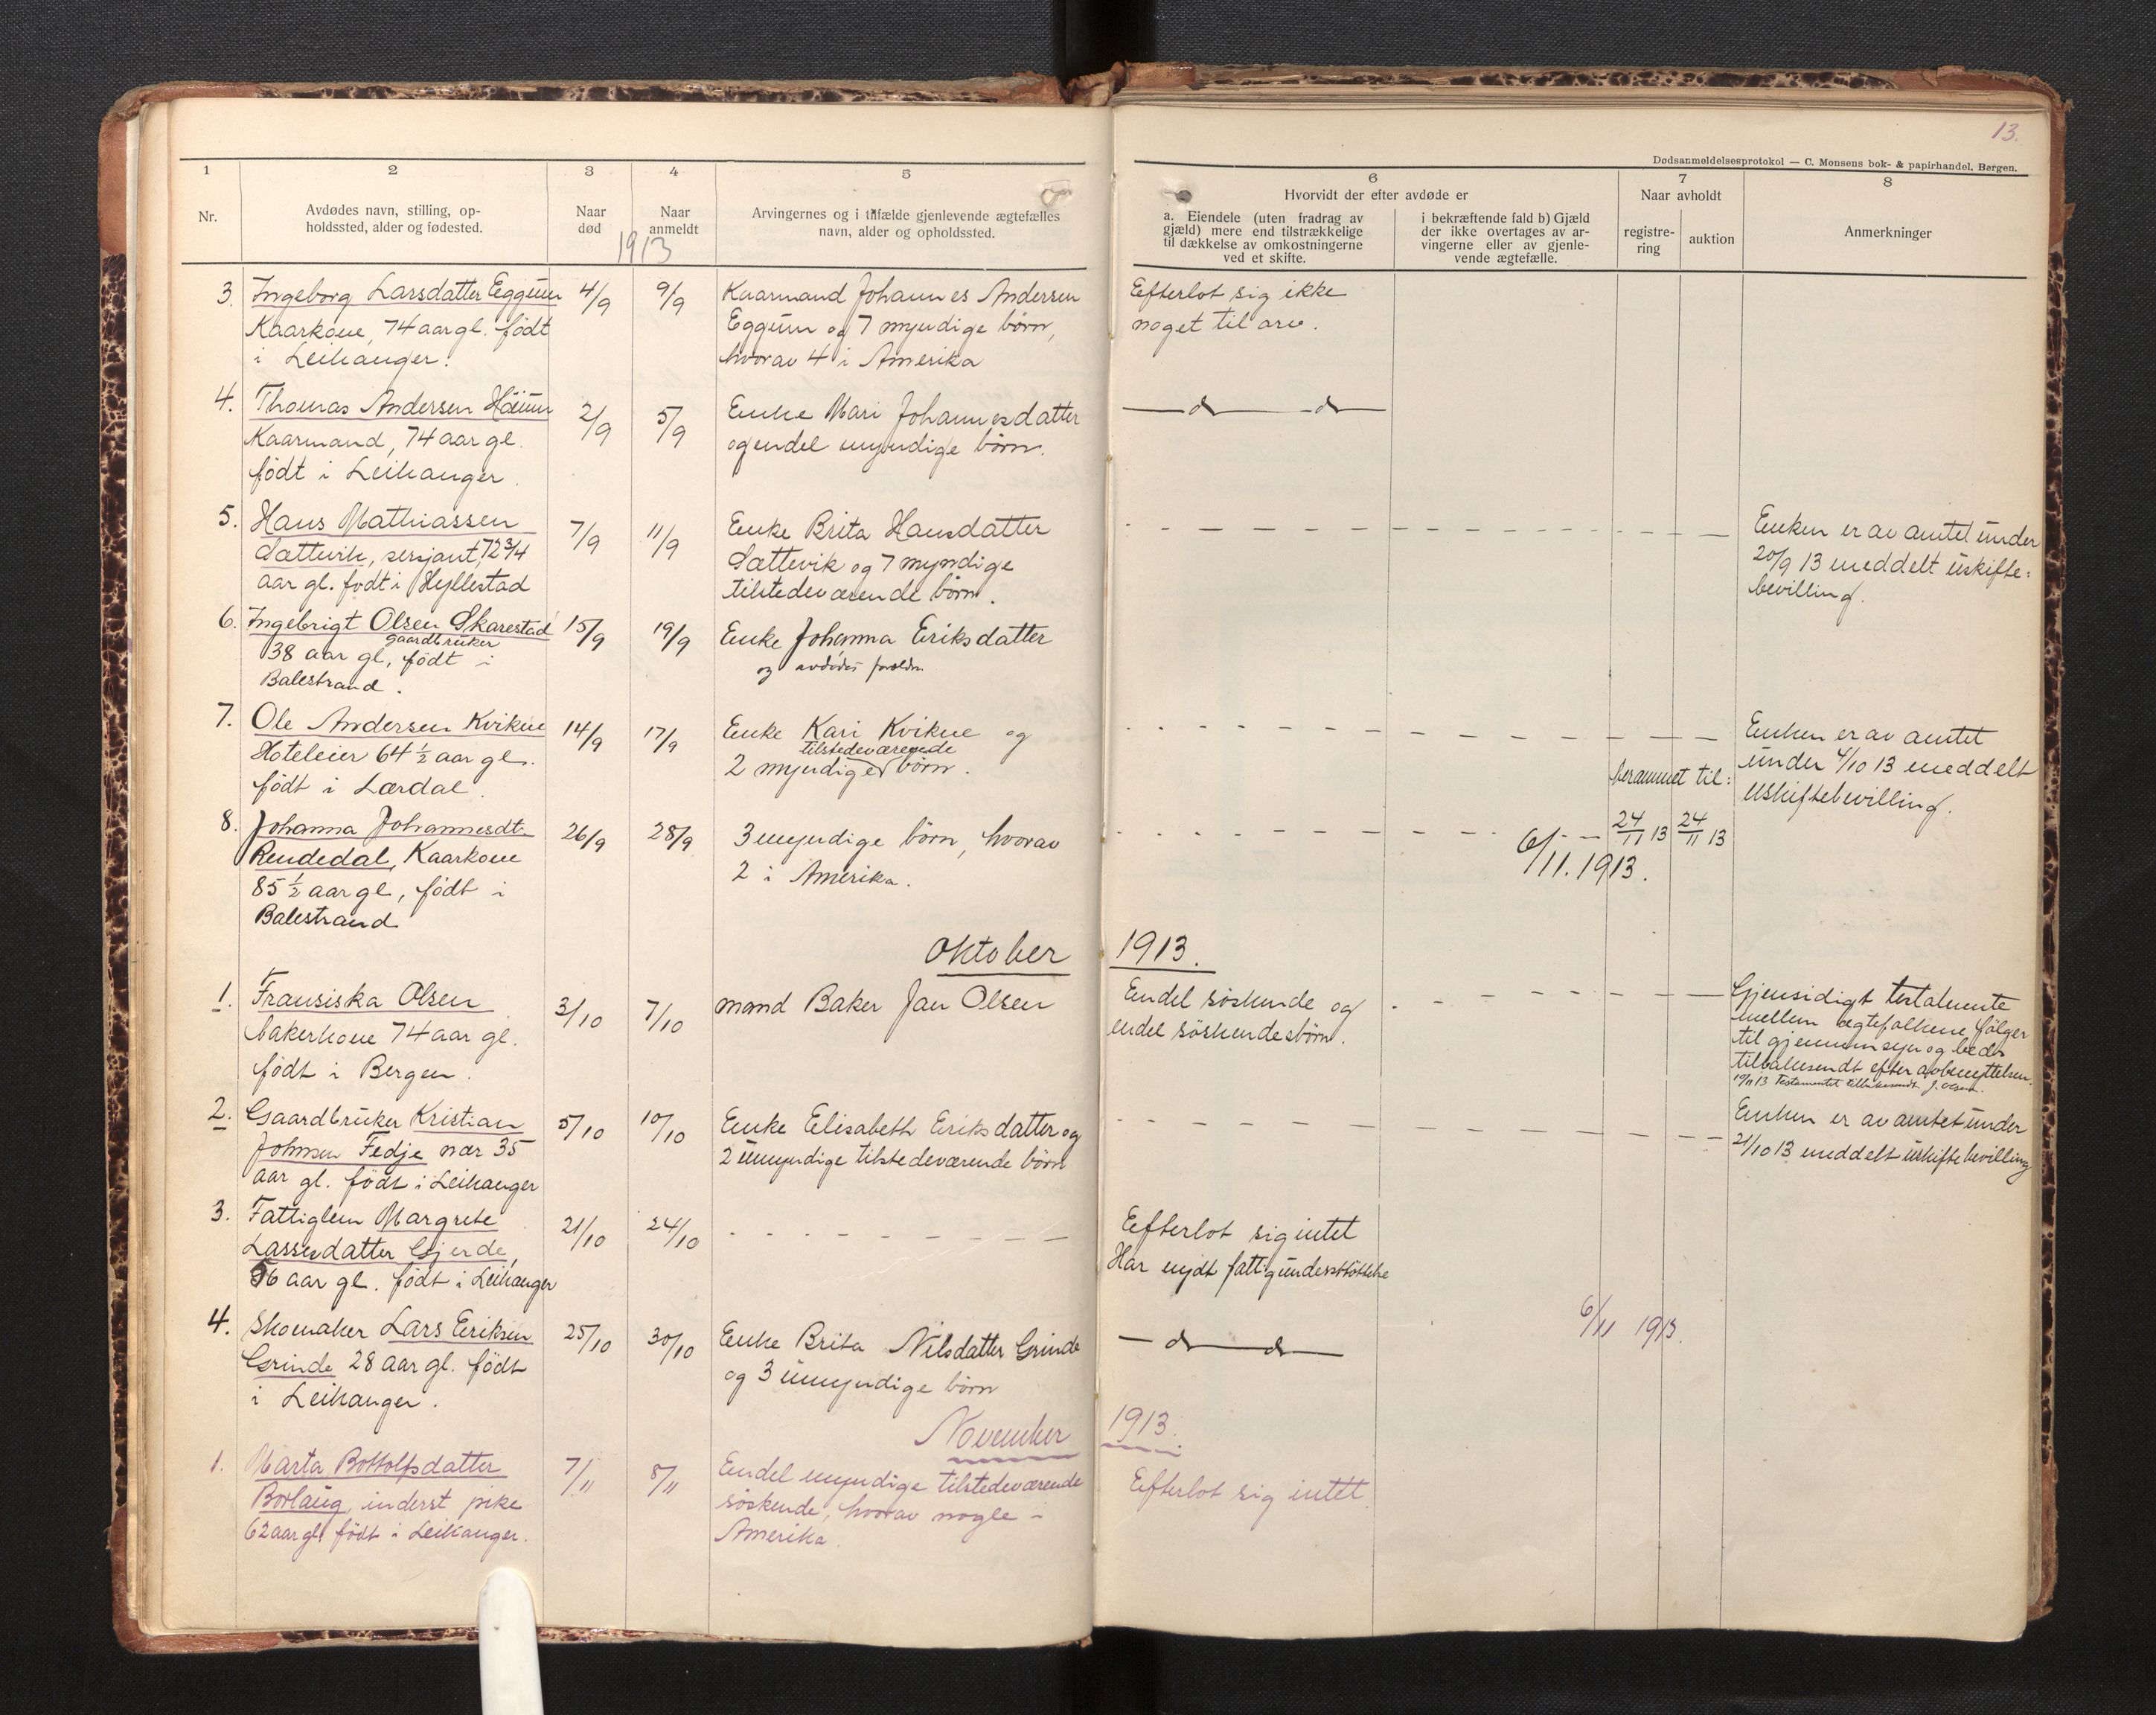 13.
Dødsanmeldelsesprotokol — C. Monsens bok- & papirhandel. Bergen.
1
2
3
4
5
6
7
8
Nr.
Avdødes navn, stilling, op-
holdssted, alder og fødested.
Naar
død
Naar
anmeldt
1913
Arvingernes og i tilfælde gjenlevende ægtefælles
navn, alder og opholdssted.
Hvorvidt der efter avdøde er
a. Eiendele (uten fradrag av
gjæld) mere end tilstrækkelige
til dækkelse av omkostningerne
ved et skifte.
i bekræftende fald b) Gjæld
der ikke overtages av ar-
vingerne eller av gjenle-
vende ægtefælle.
Naar avholdt
registre-
ring
auktion
Anmerkninger
3. Ingeborg Larsdatter Eggum
Kaarkone, 74 aar gl. født
i Leikanger.
4/9
9/9
Kaarmand Johannes Andersen
Eggum og 7 myndige børn,
hvorav 4 i Amerika
Efterlot sig ikke
noget til arv.
4. Thomas Andersen Häum
Kaarmand, 74 aar gl.
født i Leikanger.
2/9
5/9
Enke Mari Johannesdatter
og endel myndige børn.
— d — d —
5. Hans Mathiassen
Sættevik, sersjant, 72 3/4
aar gl. født i Hyllestad
7/9
11/9
Enke Brita Hansdatter
Sættevik og 7 myndige
tilstedeværende børn.
Enken er av amtet under
20/9 13 meddelt uskifte=
bevilling.
6. Ingebrigt Olsen Skarestad
gaardbruker
38 aar gl, født i
Balestrand.
15/9
19/9
Enke Johanna Eriksdatter
og avdødes forældre
7. Ole Andersen Kvikne
Hoteleier 64 1/2 aar gl.
født i Lærdal.
14/9
17/9
Enke Kari Kvikne og
tilstedeværende
2 myndige børn.
Enken er av amtet
under 4/10 13 meddelt
uskiftebevilling.
8. Johanna Johannesdt.
Rendedal, Kaarkone
85 1/2 aar gl, født i
Balestrand
26/9
28/9
3 myndige børn, hvorav
2 i Amerika.
berammet til:
24/11 13
24/11 13
6/11. 1913.
Oktober 1913.
1. Fransiska Olsen
bakerkone 74 aar gl.
født i Bergen.
3/10
7/10
mand Baker Jan Olsen
Endel søskende og
endel søskendesbørn.
Gjensidigt testamente
mellem ægtefolkene følger
til gjennemsyn og bedes
tilbakesendt efter avbenyttelsen.
Testamentet tilbakesendt. J. Olsen.
2. Gaardbruker Kristian
Johnsen Fedje nær 35
aar gl. født i Leikanger
5/10
10/10
Enke Elisabeth Eriksdatter og
2 umyndige tilstedeværende børn
Enken er av amtet under
21/10 13 meddelt uskiftebevilling
3. Fattiglem Margrete
Lassesdatter Gjerde,
56 aar gl. født i Leikanger
21/10
24/10
Efterlot sig intet
Har nydt fattigunderstøttelse
4. Skomaker Lars Eriksen
Grinde 28 aar gl. født
i Leikanger.
25/10
30/10
Enke Brita Nilsdatter Grinde
og 3 umyndige børn
— d — d —
6/11 1913.
November 1913.
1. Marta Bottolfsdatter
Borlaug, inderst pike
62 aar gl. født i Leikanger.
7/11
8/11
Endel myndige tilstedeværende
søskende, hvorav nogle i
Amerika.
Efterlot sig intet.